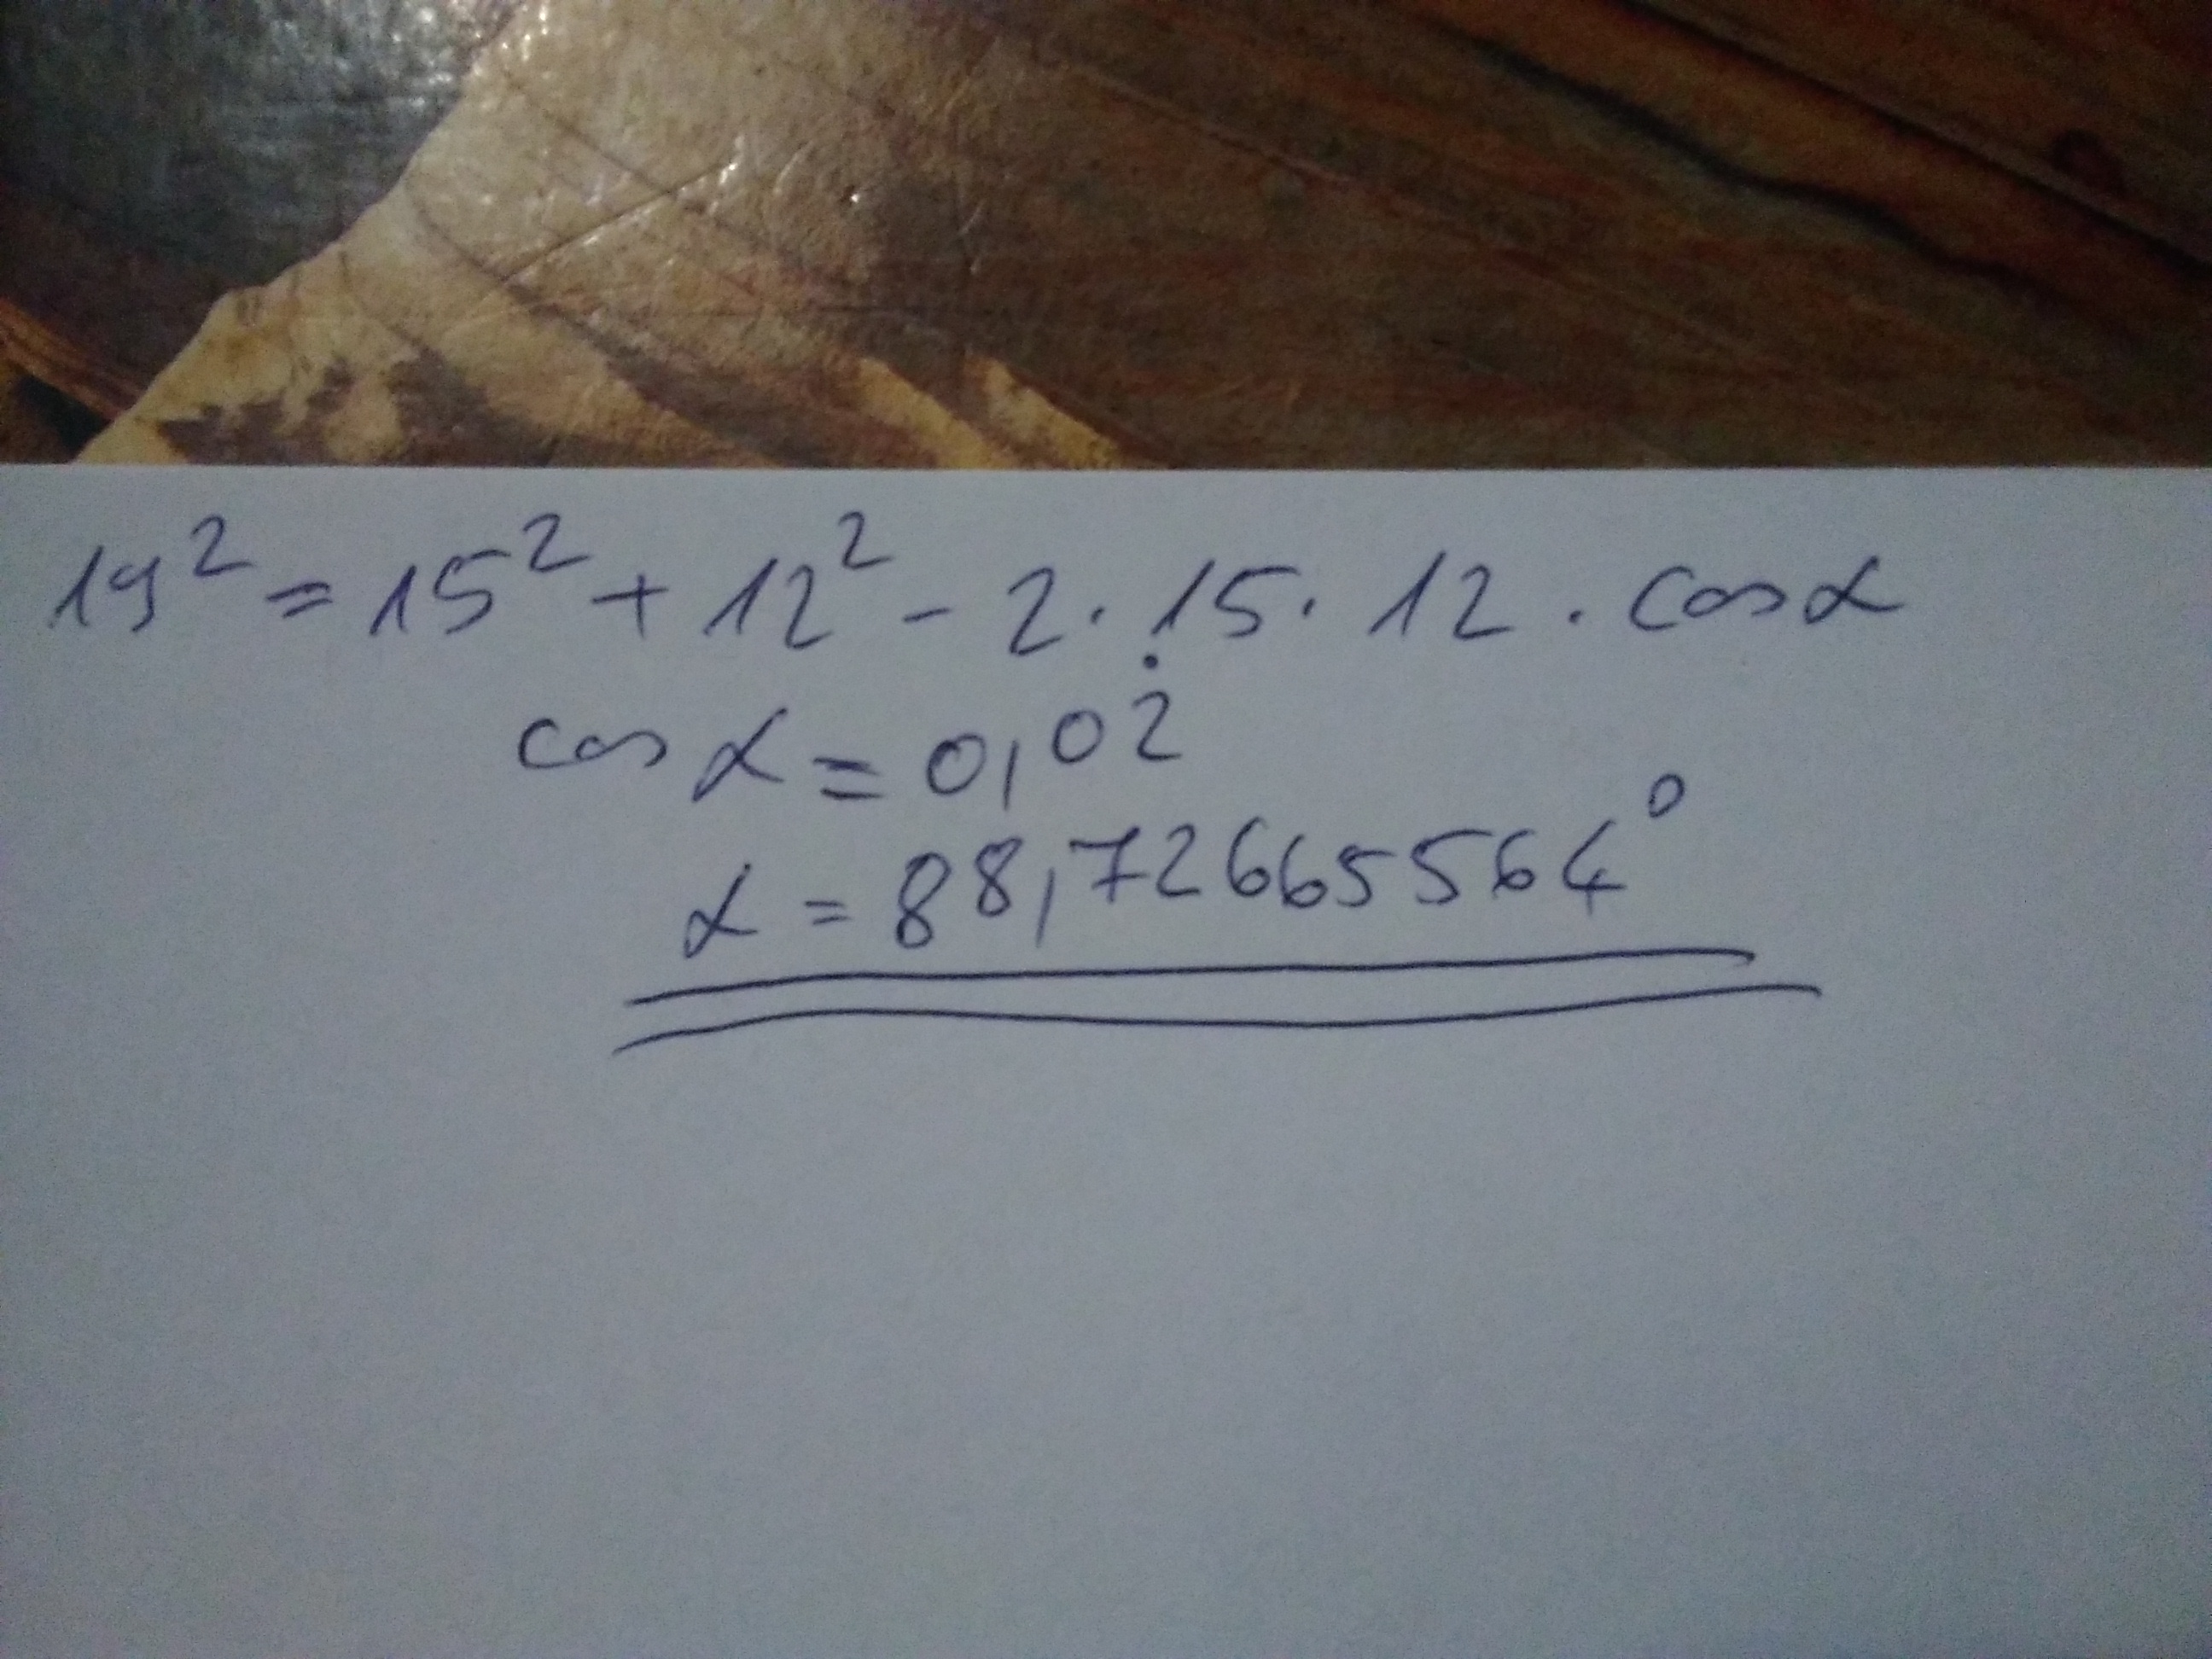 19² = 15² + 12² - 2 · 15 · 12 · cos α
cos α = 0,02̇
α = 88,72665564°